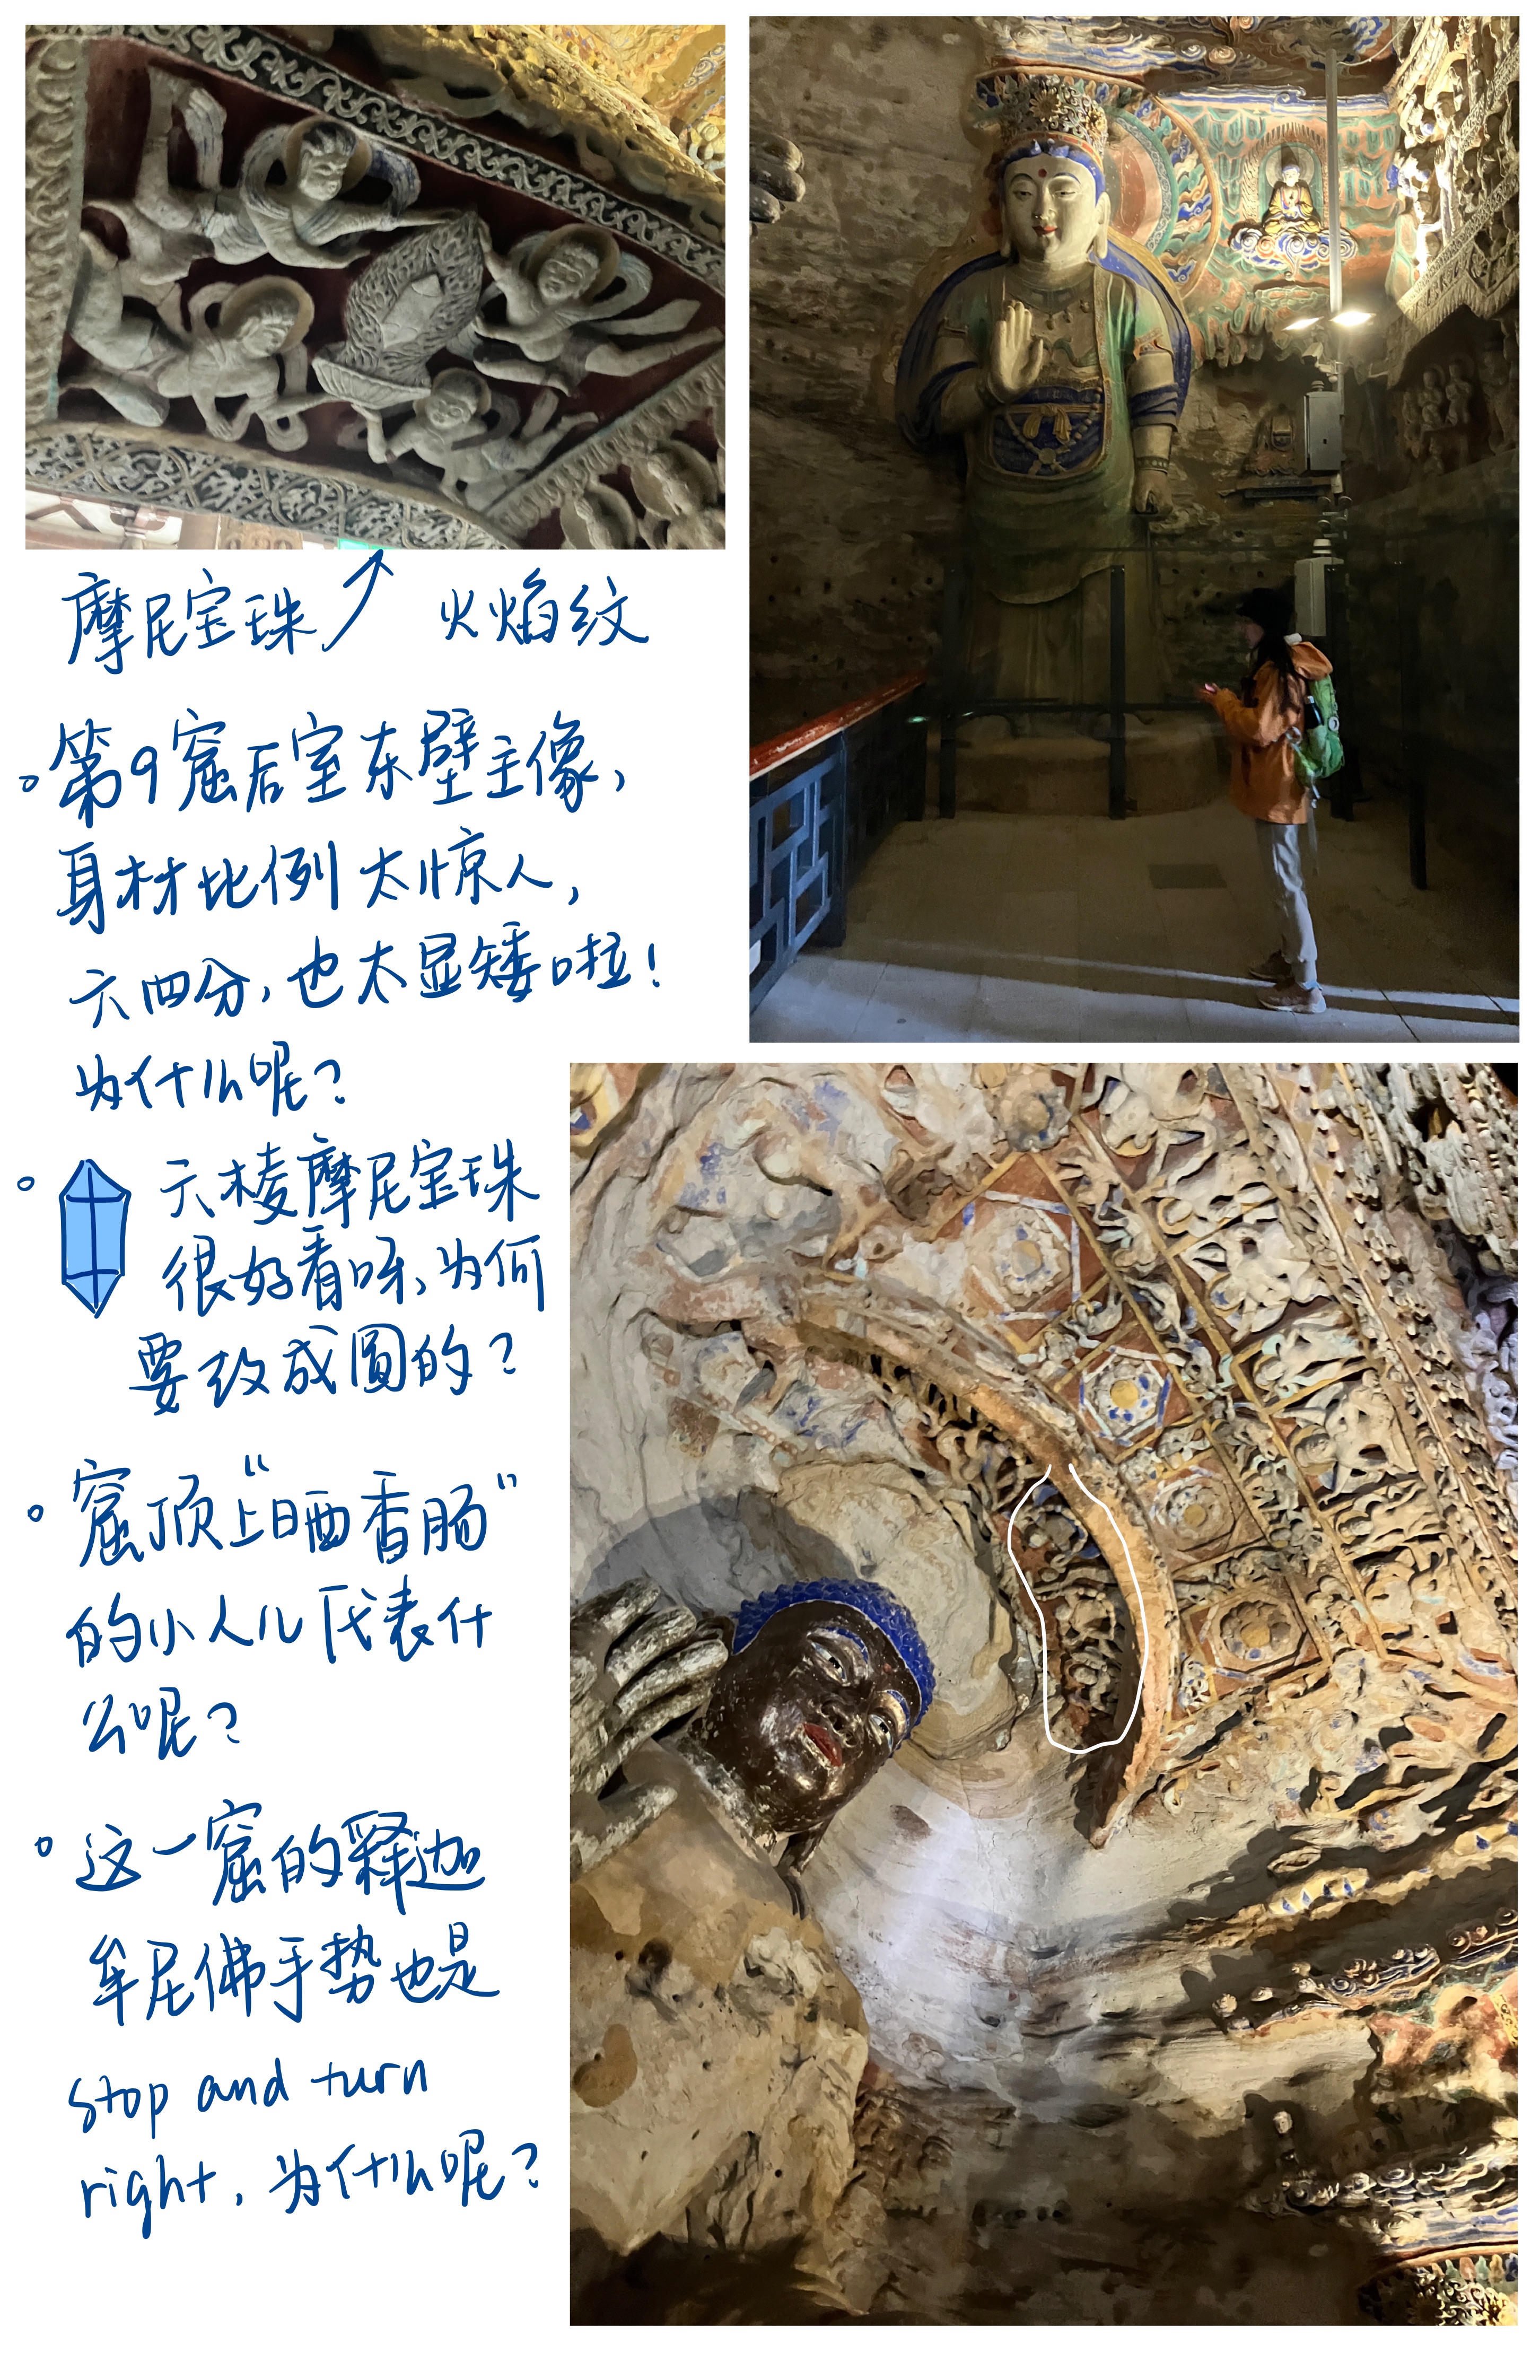 摩尼宝珠↗ 火焰纹
。第9窟后室东壁主像,
身材比例太惊人,
六四分,也太显矮啦!
为什么呢?
。六棱摩尼宝珠
很好看呀,为何
要改成圆的?
。窟顶上"晒香肠"
的小人儿代表什
么呢?
。这一窟的释迦
牟尼佛手势也是
stop and turn
right,为什么呢?